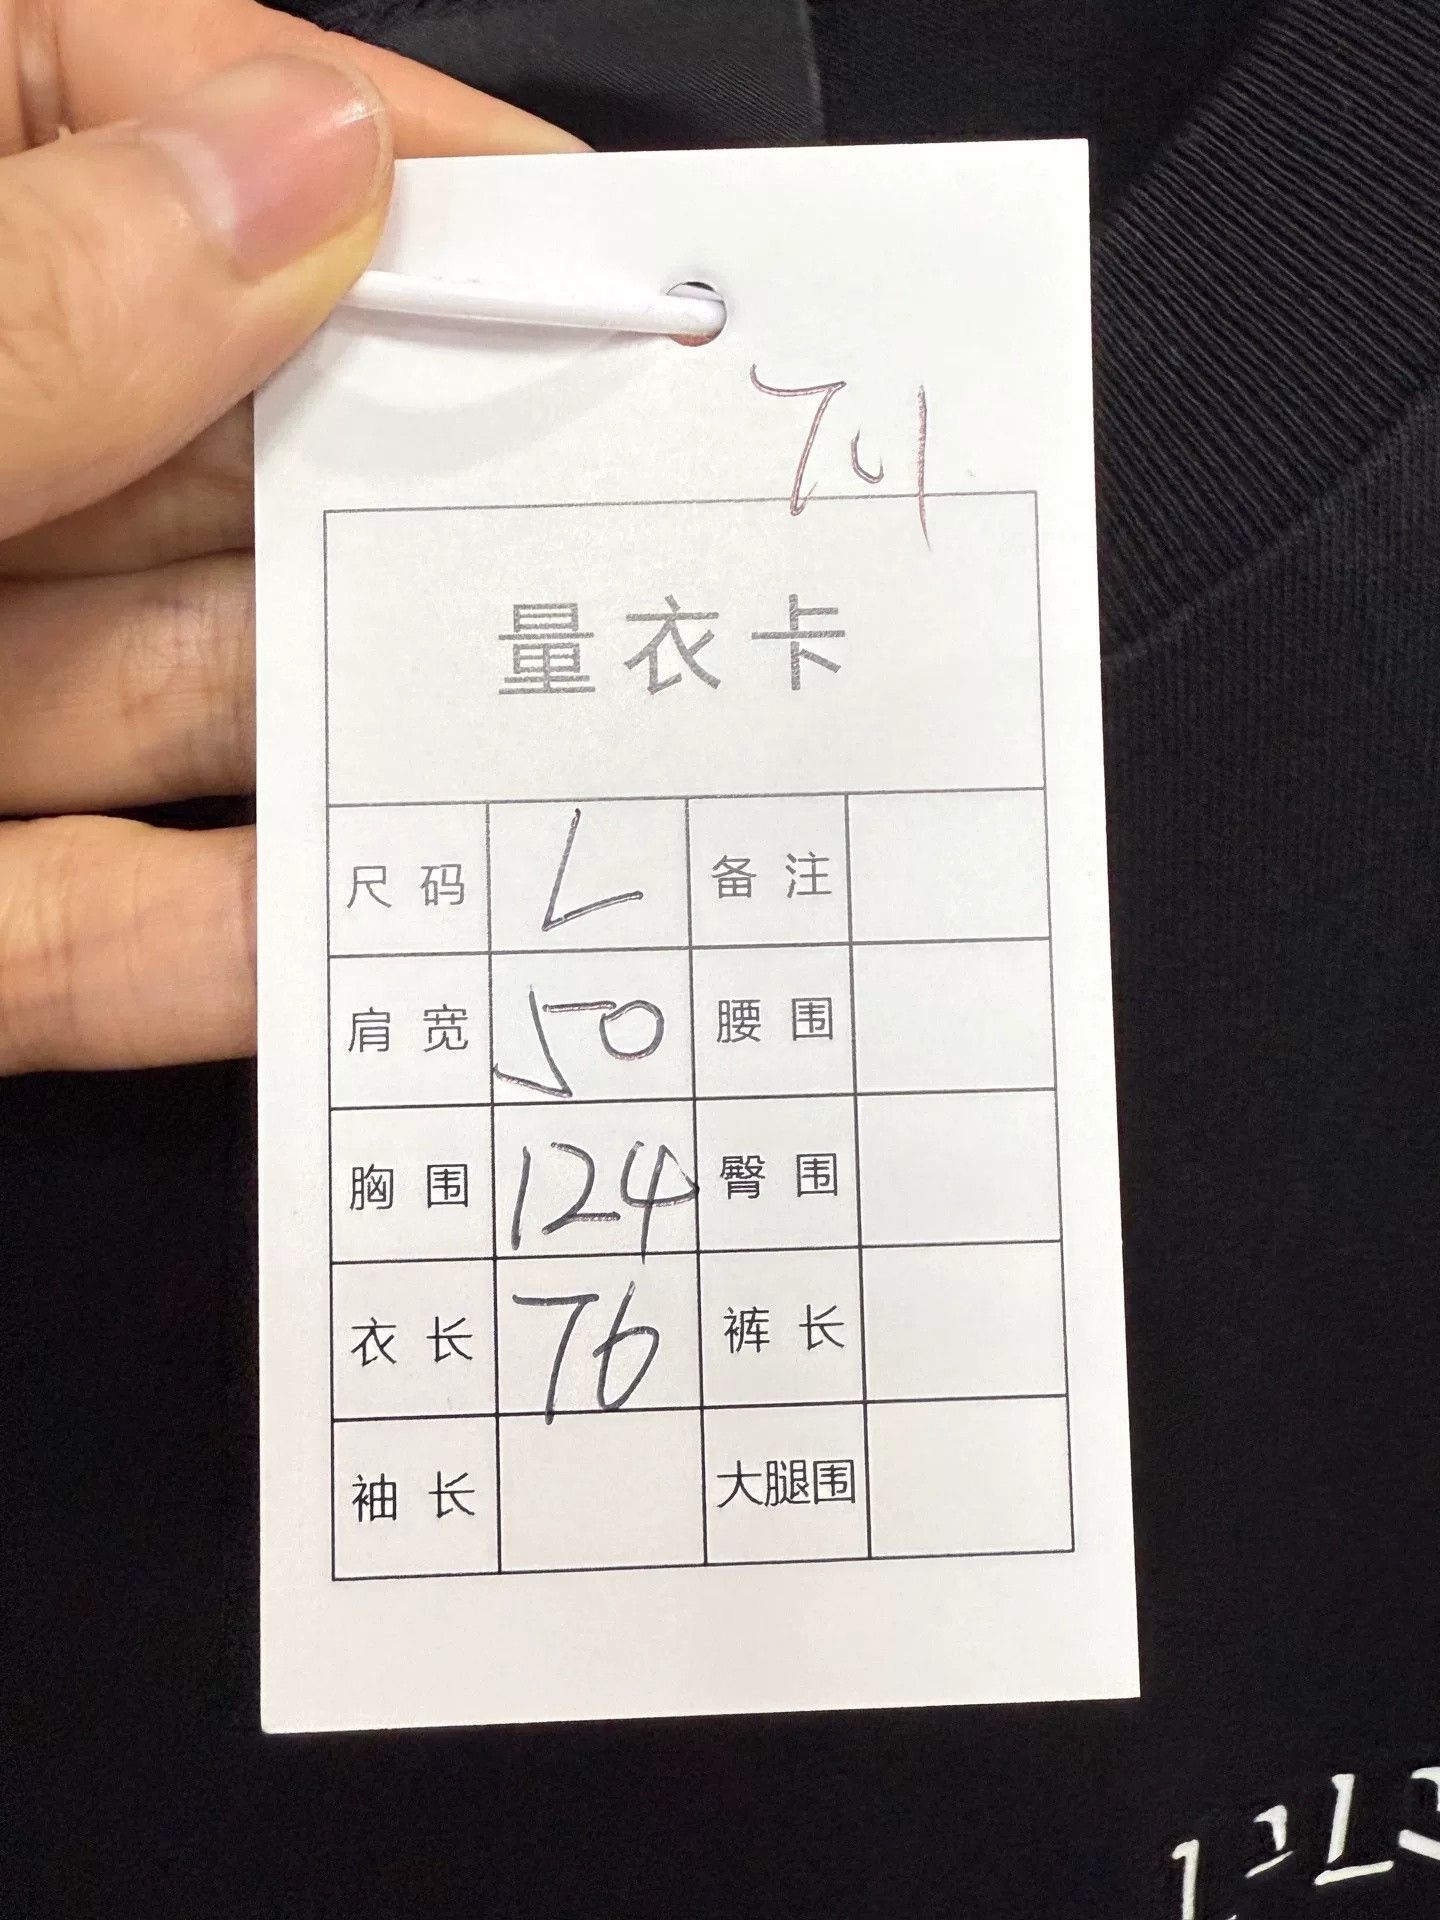 量衣卡
尺码 L 备注
肩宽 50 腰围
胸围 124 臀围
衣长 76 裤长
袖长 大腿围